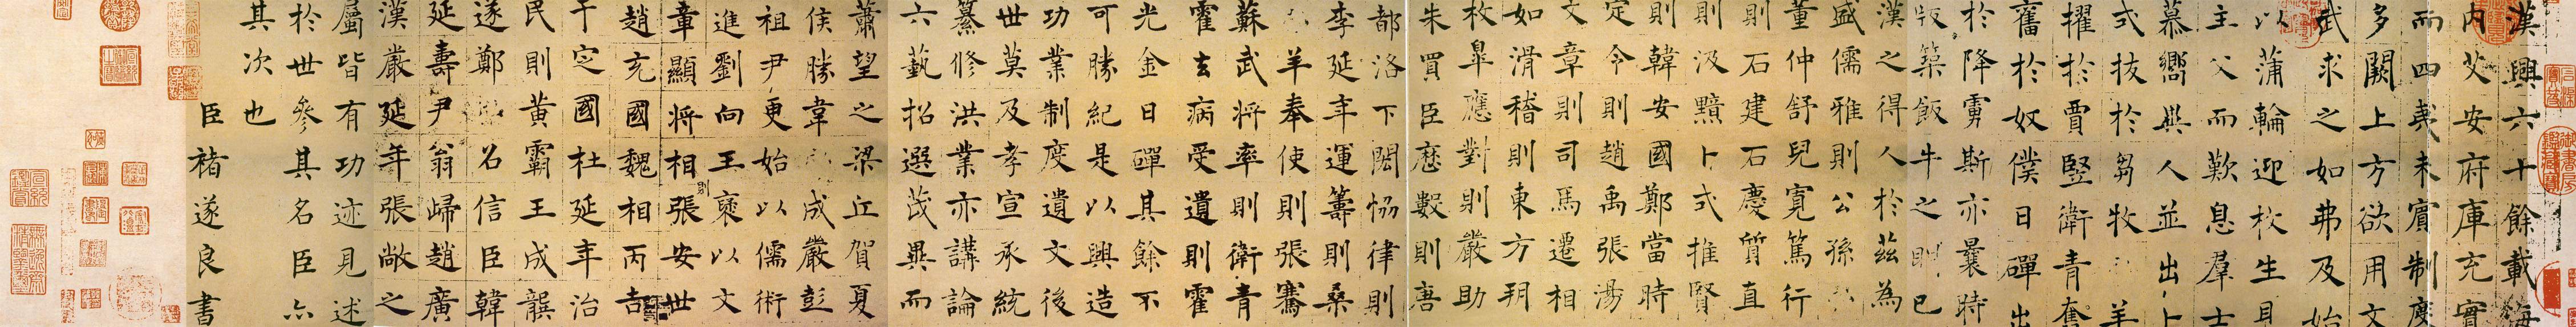 漢興六十餘載海
內艾安府庫充實
而四夷未賓制度
多闕上方欲用文
武求之如弗及始
以蒲輪迎枚生見
主父而歎息羣士
慕嚮異人並出卜
式拔於芻牧羊
擢於賈豎衛青奮
奮於奴僕日磾出
於降虜斯亦曩時
版築飯牛之明已
漢之得人於茲為
盛儒雅則公孫
董仲舒兒寬篤行
則石建石慶質直
則汲黯卜式推賢
則韓安國鄭當時
定令則趙禹張湯
文章則司馬遷相
如滑稽則東方朔
枚皐應對則嚴助
朱買臣歷數則唐
都洛下閎恊律則
李延年運籌則桑
羊奉使則張騫
蘇武將率則衛青
霍去病受遺則霍
光金日磾其餘不
可勝紀是以興造
功業制度遺文後
世莫及孝宣承統
纂修洪業亦講論
六藝招選茂異而
蕭望之梁丘賀夏
侯勝韋成嚴彭
祖尹更始以儒術
進劉向王褒以文
章顯將相則張安世
趙充國魏相丙吉
于定國杜延年治
民則黃霸王成龔
遂鄭召信臣韓
延壽尹翁歸趙廣
漢嚴延年張敞之
屬皆有功迹見述
於世參其名臣亦
其次也
臣褚遂良書